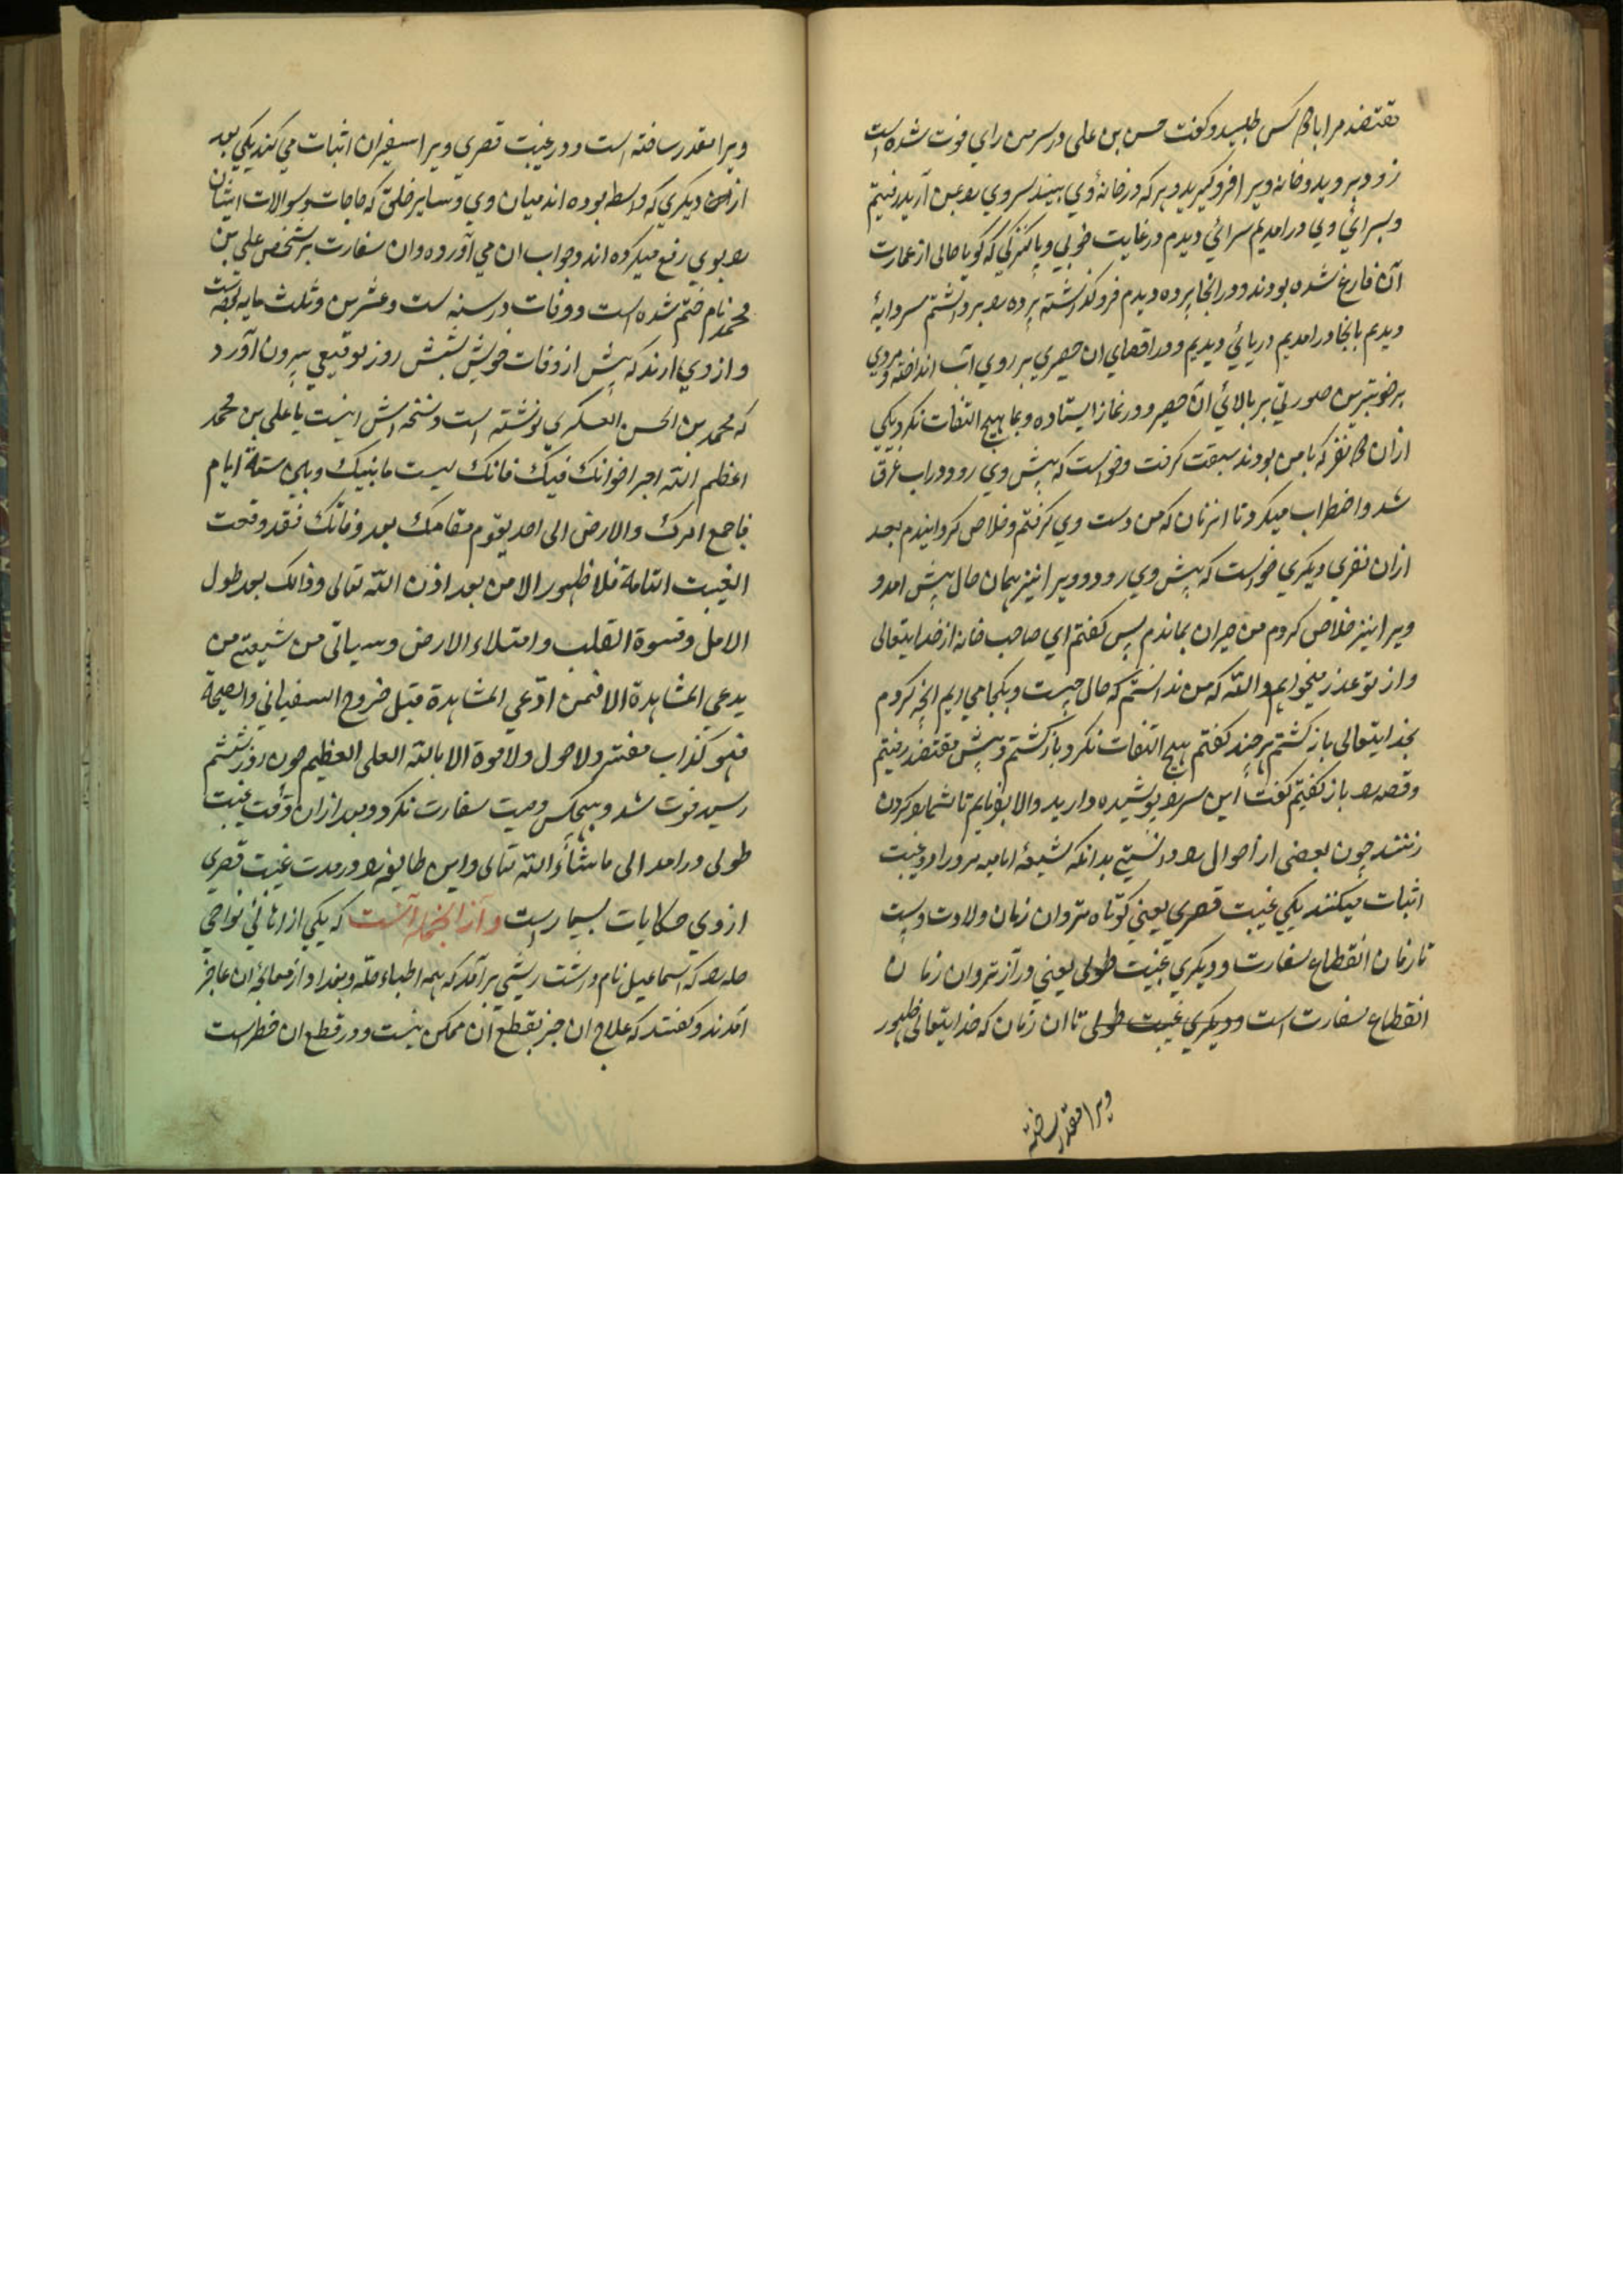 مقتضد مرا با دو کس طلبید و گفت حسن بن علی در سرمن رای فوت شده است
زود بروید و خانه ویرا فرو گیرید و هر که در خانهٔ وی بینید سر وی را بمن آرید رفتیم
و بسرائی وی درامدیم سرائی دیدم در غایت خوبی و پاکیزگی که گویا حالی از عمارت
آن فارغ شده بودند و در انجا پرده دیدم فرو گذاشته پرده را برداشتم سردابهٔ
دیدم بانجا درامدیم دریائی دیدیم و در اقصای ان حصیری بر روی آب انداخته و مردی
بر خوبترین صورتی بر بالائی آن حصیر و در نماز ایستاده و بما هیچ التفات نکرد یکی
ازان دو نفر که با من بودند سبقت گرفت و خواست که پیش وی رود در اب غرق
شد و اضطراب میکرد تا انزمان که من دست وی گرفتم و خلاص گردانیدم بعد
ازان نفری دیگری خواست که پیش وی رود و ویرا نیز همان حال پیش امد و
ویرا نیز خلاص کردم من حیران بماندم پس گفتم ای صاحب خانه از خدایتعالی
و از تو عذر میخواهم والله که من ندانستم که حال چیست و بکجا می ایم انچه کردم
بخدایتعالی باز گشتم هر چند گفتم هیچ التفات نکرد باز گشتم و پیش مقتضد رفتیم
و قصه را باز گفتیم گفت این سر را پوشیده دارید والا بفرمایم تا شما را گردن
زنند چون بعضی از احوال را دانستی بدانکه شیعهٔ امامیه مرورا دو غیبت
اثبات میکنند یکی غیبت قصری یعنی کوتاه تر و ان زمان ولادت ویست
تا زمان انقطاع سفارت و دیگری غیبت طولی یعنی دراز تر و ان زمان
انقطاع سفارت است و دیگری غیبت طولی تا ان زمان که خدایتعالی ظهور
ویرا مقدر ساخته
ویرا مقدر ساخته است و در غیبت قصری ویرا سفیران اثبات می کند یکی بعد
ازان دیگری که واسطه بوده اند میان وی و سایر خلق که حاجات و سوالات ایشان
را بوی رفع میکرده اند و جواب ان می آورده و ان سفارت بر شخص علی بن
محمد نام ختم شده است و وفات در سنه ست و عشرین و ثلث مایه بوده است
و از وی ارند که پیش از وفات خویش بشش روز توقیعی بیرون آورد
که محمد بن الحسن العسکری نوشته است و نسخه اش اینست یا علی بن محمد
اعظم الله اجر اخوانک فیک فانک میت ما بینک و بین ستة ایام
فاجمع امرک والارض الی احد یقوم مقامک بعد وفاتک فقد وقعت
الغیبت التامة فلا ظهور الا من بعد اذن الله تعالی و ذالک بعد طول
الامل و قسوة القلب و امتلاء الارض و سیاتی من شیعتی من
یدعی المشاهدة الا فمن ادّعی المشاهدة قبل خروج السفیانی والصیحة
فهو کذاب مفتر ولا حول ولا قوة الا بالله العلی العظیم چون روز ششم
رسید فوت شد و بهیچکس وصیت سفارت نکرد و بعد ازان وقت غیبت
طولی درامد الی ماشاء الله تعالی و این طایفه را در مدت غیبت قصری
از وی حکایات بسیار است و از انجمله آنست که یکی از اهالئی نواحی
حله را که اسماعیل نام داشت ریشی برآمد که همه اطباء حله و بغداد از معالجهٔ ان عاجز
آمدند و گفتند که علاج ان جز بقطع آن ممکن نیست و در قطع ان خطر است